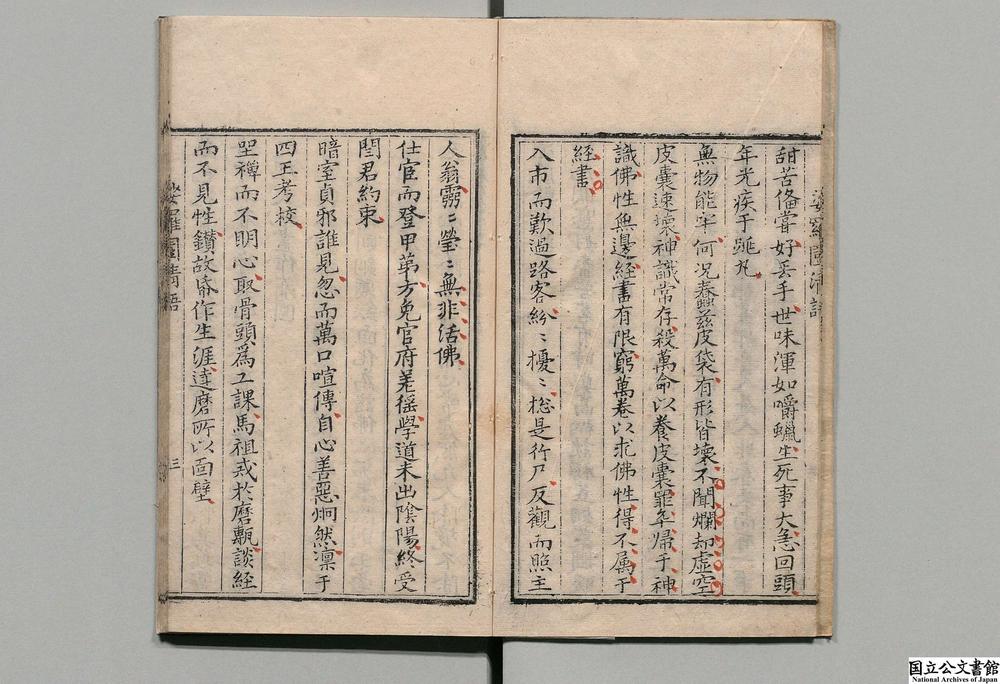 娑羅園清語
甜苦俻嘗好丢手世味渾如嚼蠟生死事大急回頭
年光疾于跳丸
無物能牢何况蠢茲皮袋有形皆壞不聞爛却虛空
皮囊速壞神識常存殺萬命以養皮囊罪卒歸于神
識佛性無邊經書有限窮萬卷以求佛性得不属于
經書
入市而歎過路客紛〻擾〻捴是行尸反觀而照主
人翁靈〻瑩〻無非活佛
仕宦而登甲苐方免官府差徭學道未出陰陽終受
閻君約束
暗室貞邪誰見忽而萬口喧傳自心善惡炯然凛于
四王考校
坐禅而不明心取骨頭為工課馬祖戒於磨甎談經
而不見性鑚故帋作生涯達磨所以面壁
娑羅園清語
三
国立公文書館
National Archives of Japan